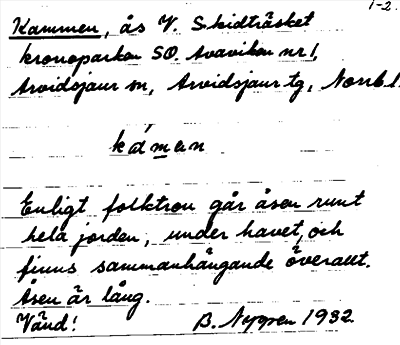 1-2.
Kammen, ås V. Skidträsket
kronoparken SO. Avaviken nr 1,
Arvidsjaur sn, Arvidsjaur tg, Norrb. l.
kámɐn
Enligt folktron går åsen runt
hela jorden, under havet, och
finns sammanhängande överallt.
Åsen är lång.
Vänd! B. Nygren 1932